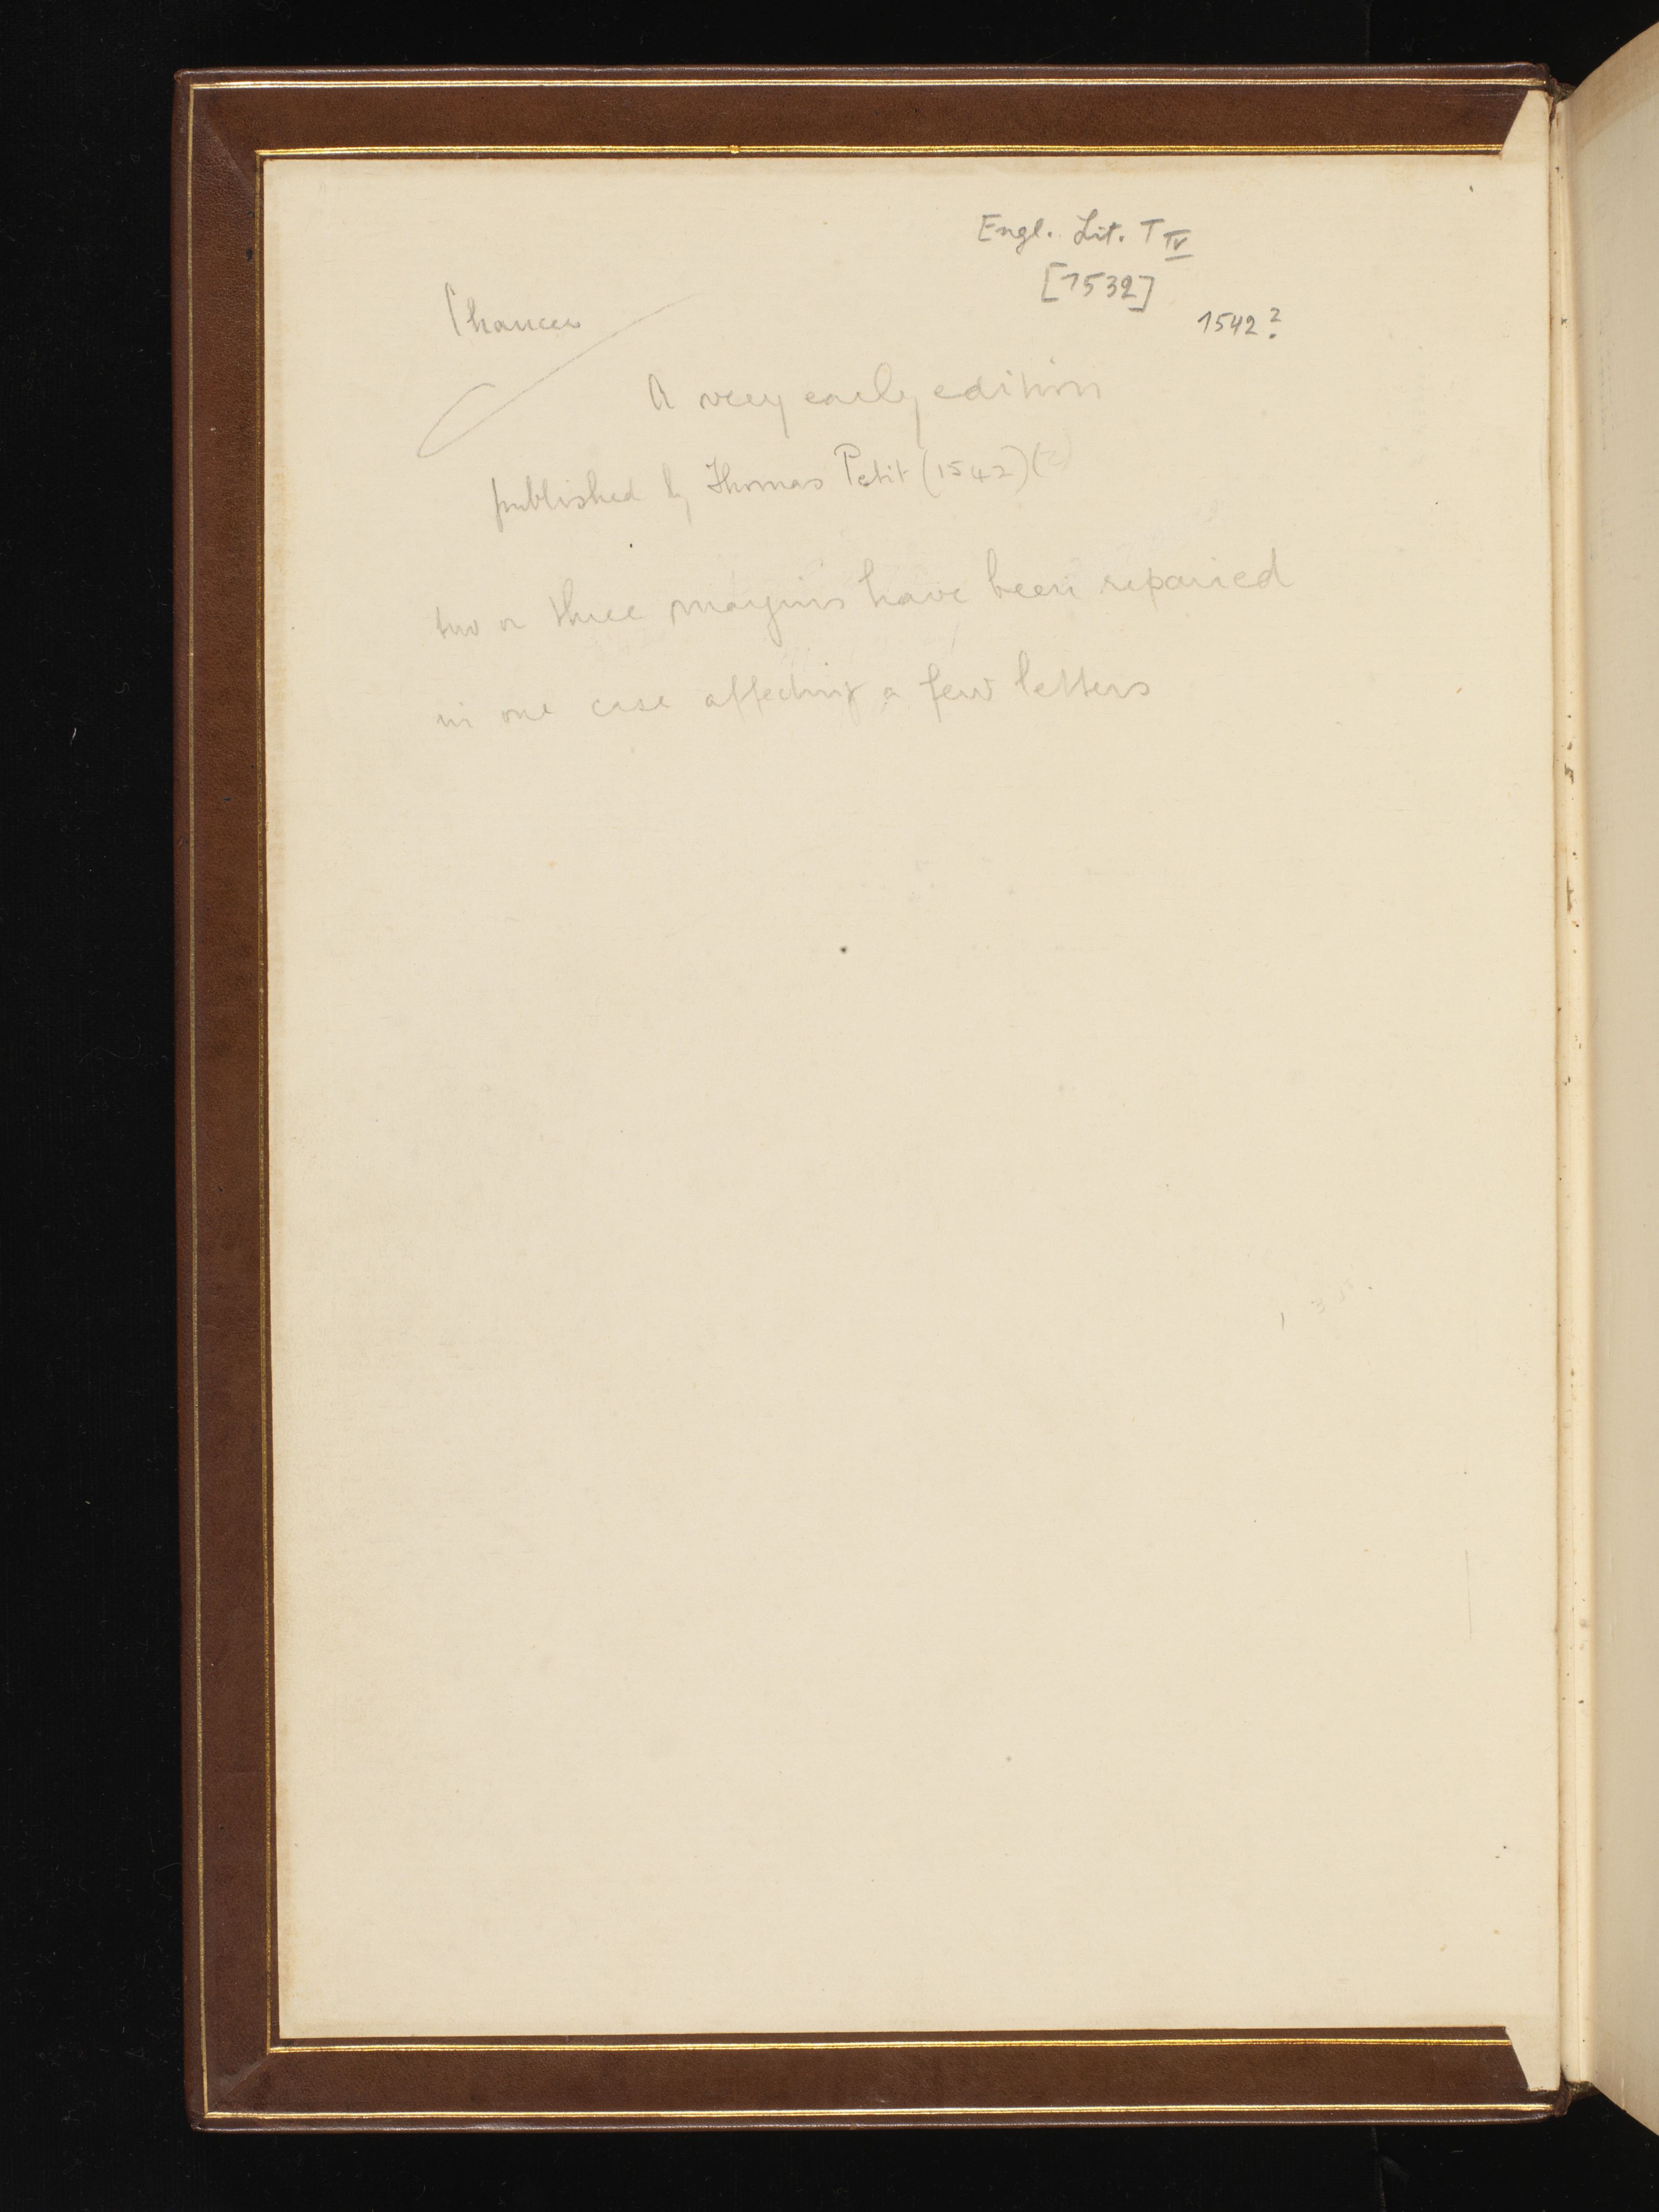 Engl. Lit. T IV
[1532]
1542?
Chaucer
A very early edition
published by Thomas Petit (1542) (?)
two or three margins have been repaired
in one case affecting a few letters